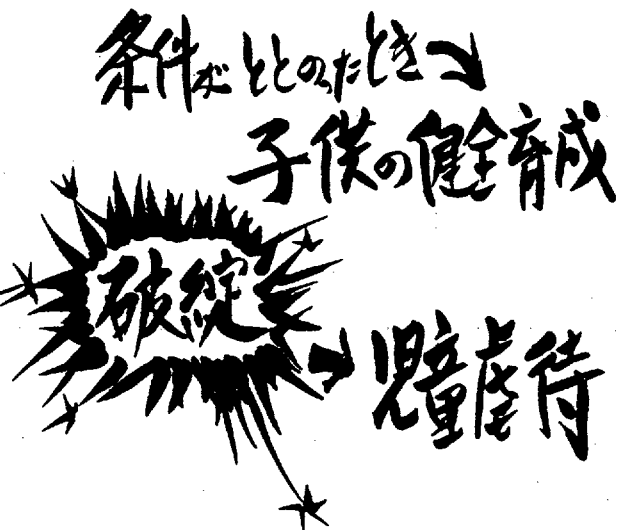 条件がととのったとき
子供の健全育成
破綻
児童虐待